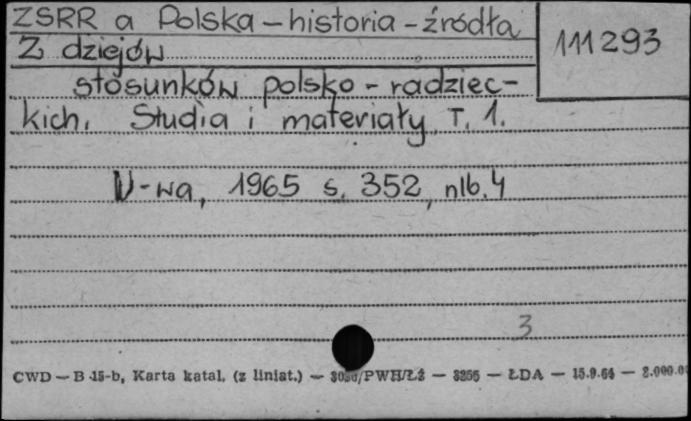 ZSRR a Polska - historia - źródła
111293
Z dziejów
stosunków polsko - radziec-
kich. Studia i materiały T. 1.
W-wa, 1965 s. 352, nlb. 4
3
CWD — B 15-b, Karta katal. (z liniat.) — /PWH/Łż — 3256 — ŁDA — 15.9.64 —